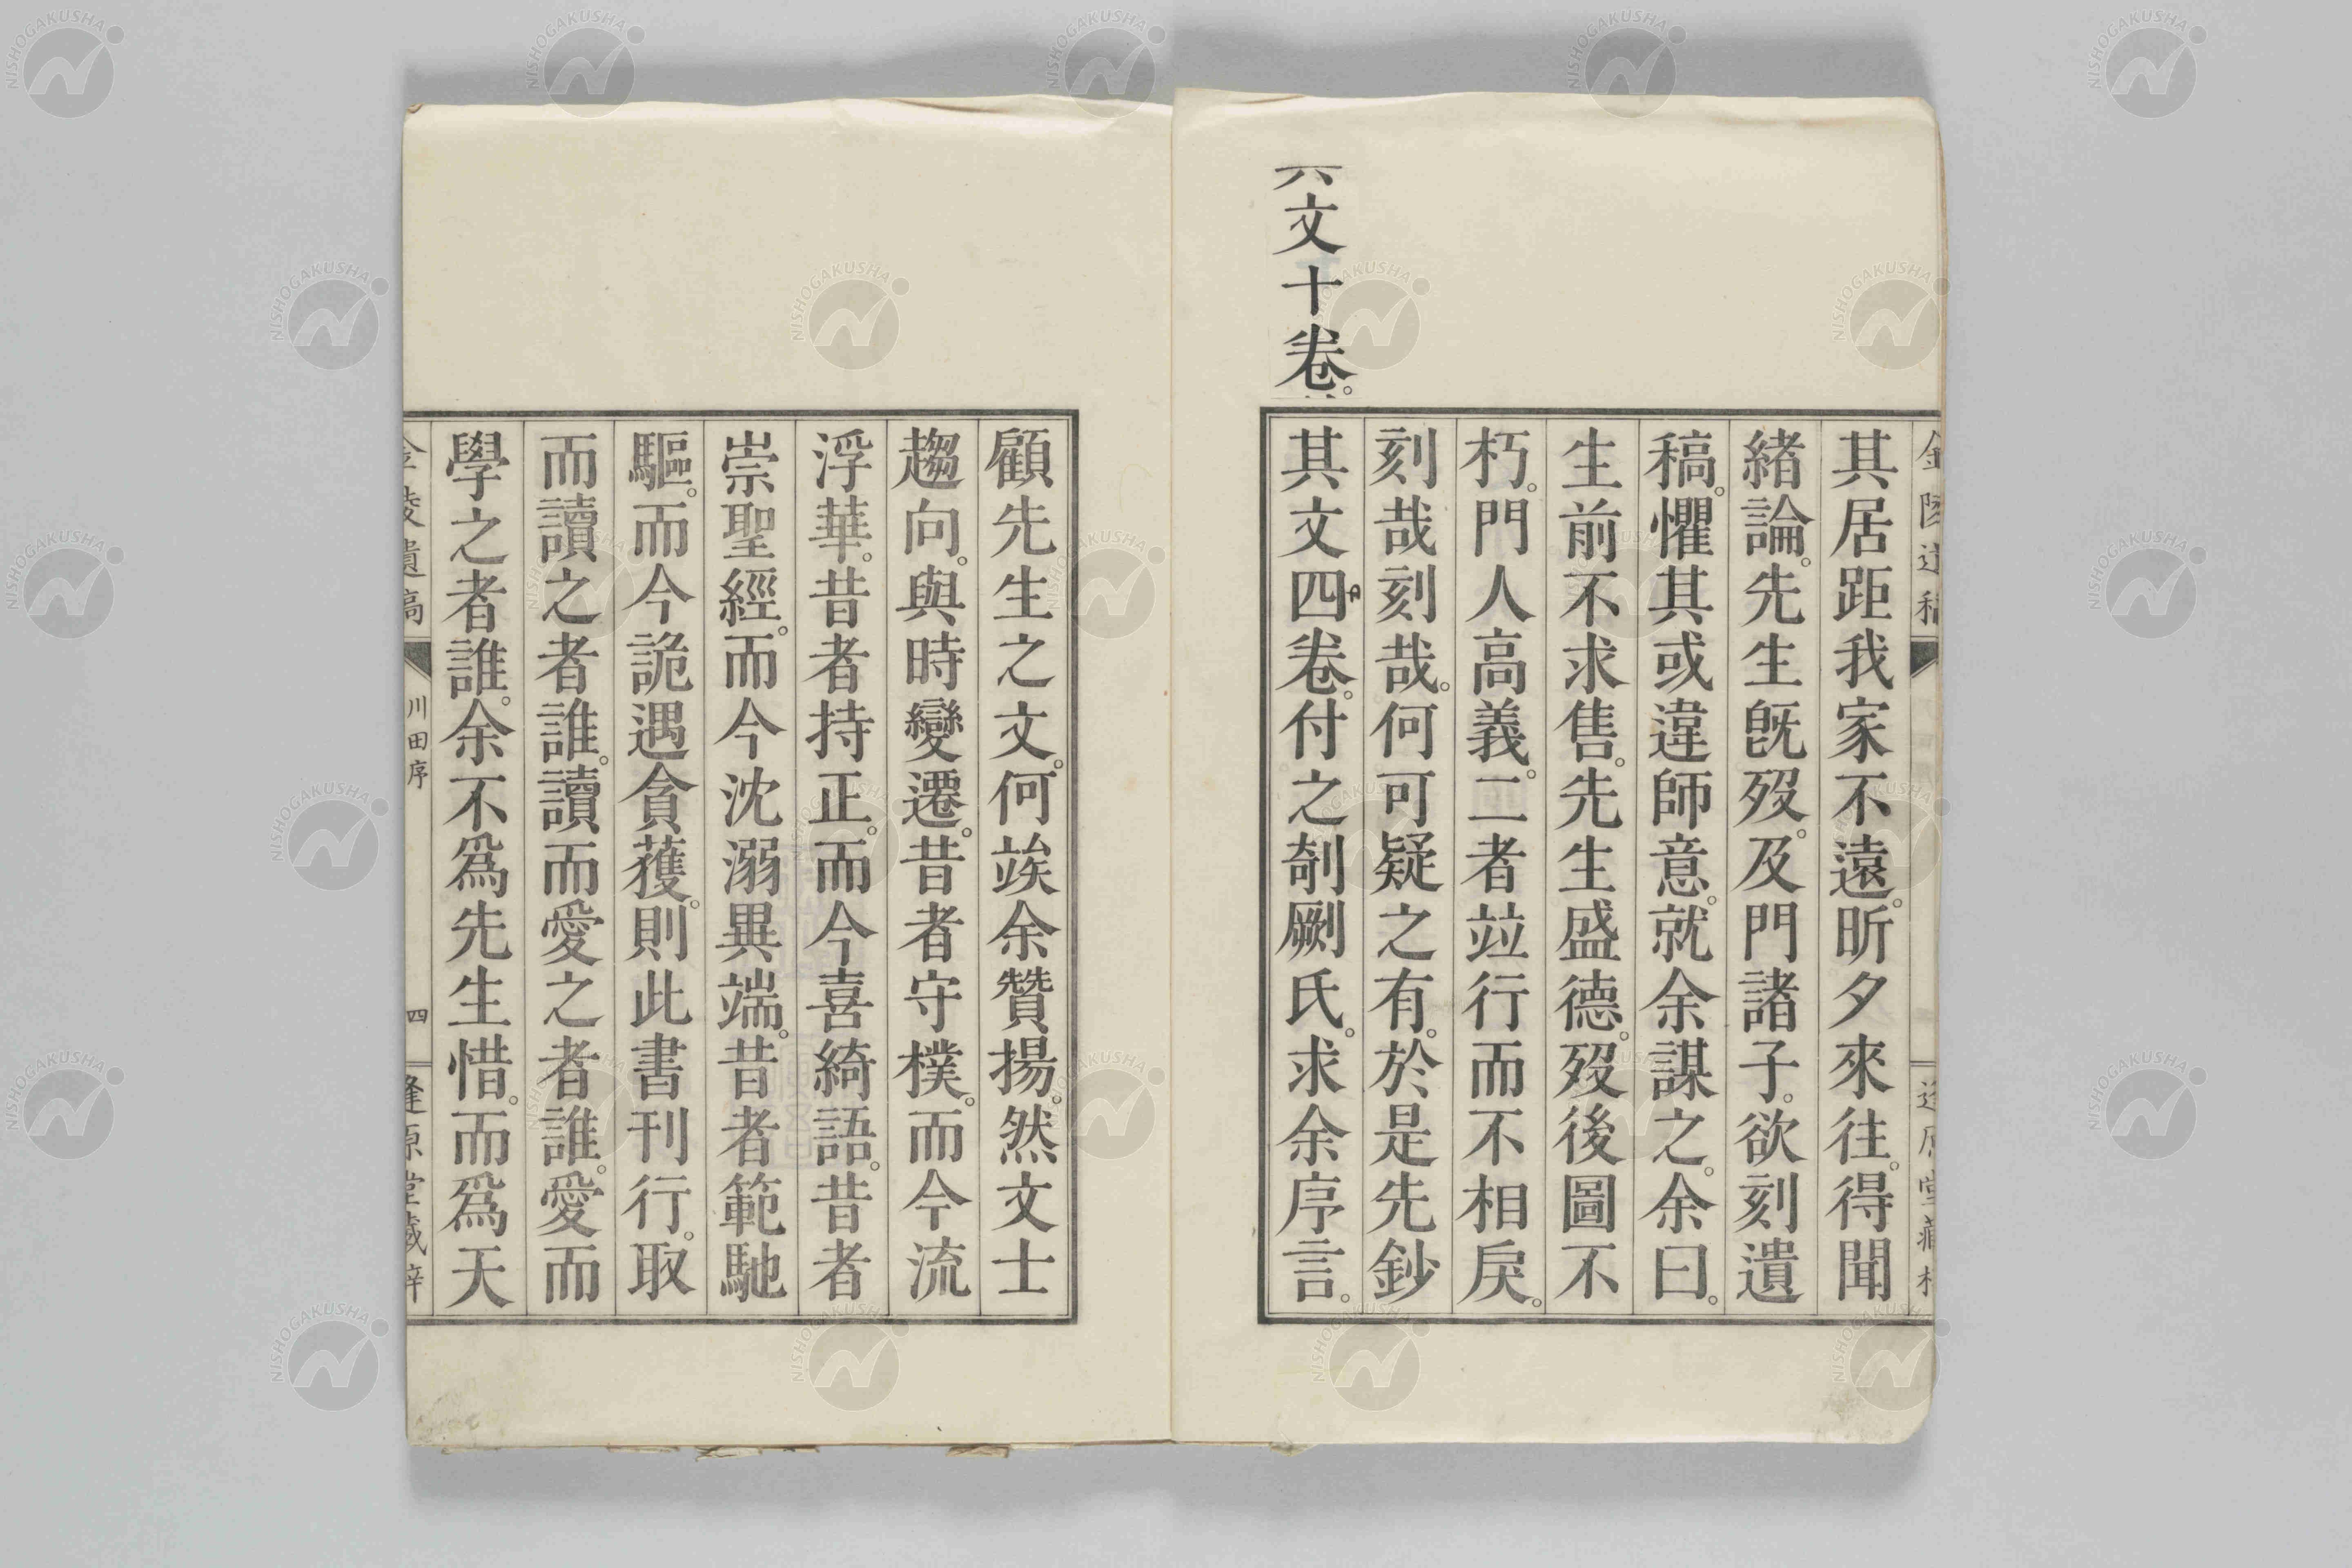 其居距我家不遠。昕夕來往。得聞
緒論。先生旣歿。及門諸子。欲刻遺
稿。懼其或違師意。就余謀之。余曰。
生前不求售。先生盛德。歿後圖不
朽。門人高義。二者竝行而不相戾。
刻哉刻哉。何可疑之有。於是先鈔
其文四卷。付之剞劂氏。求余序言。
文十卷。
顧先生之文。何竢余贊揚。然文士
趨向。與時變遷。昔者守樸。而今流
浮華。昔者持正。而今喜綺語。昔者
崇聖經。而今沈溺異端。昔者範馳
驅。而今詭遇貪獲。則此書刊行。取
而讀之者誰。讀而愛之者誰。愛而
學之者誰。余不爲先生惜。而爲天
金陵遺稿
川田序
四
逢原堂藏梓
NISHOGAKUSHA